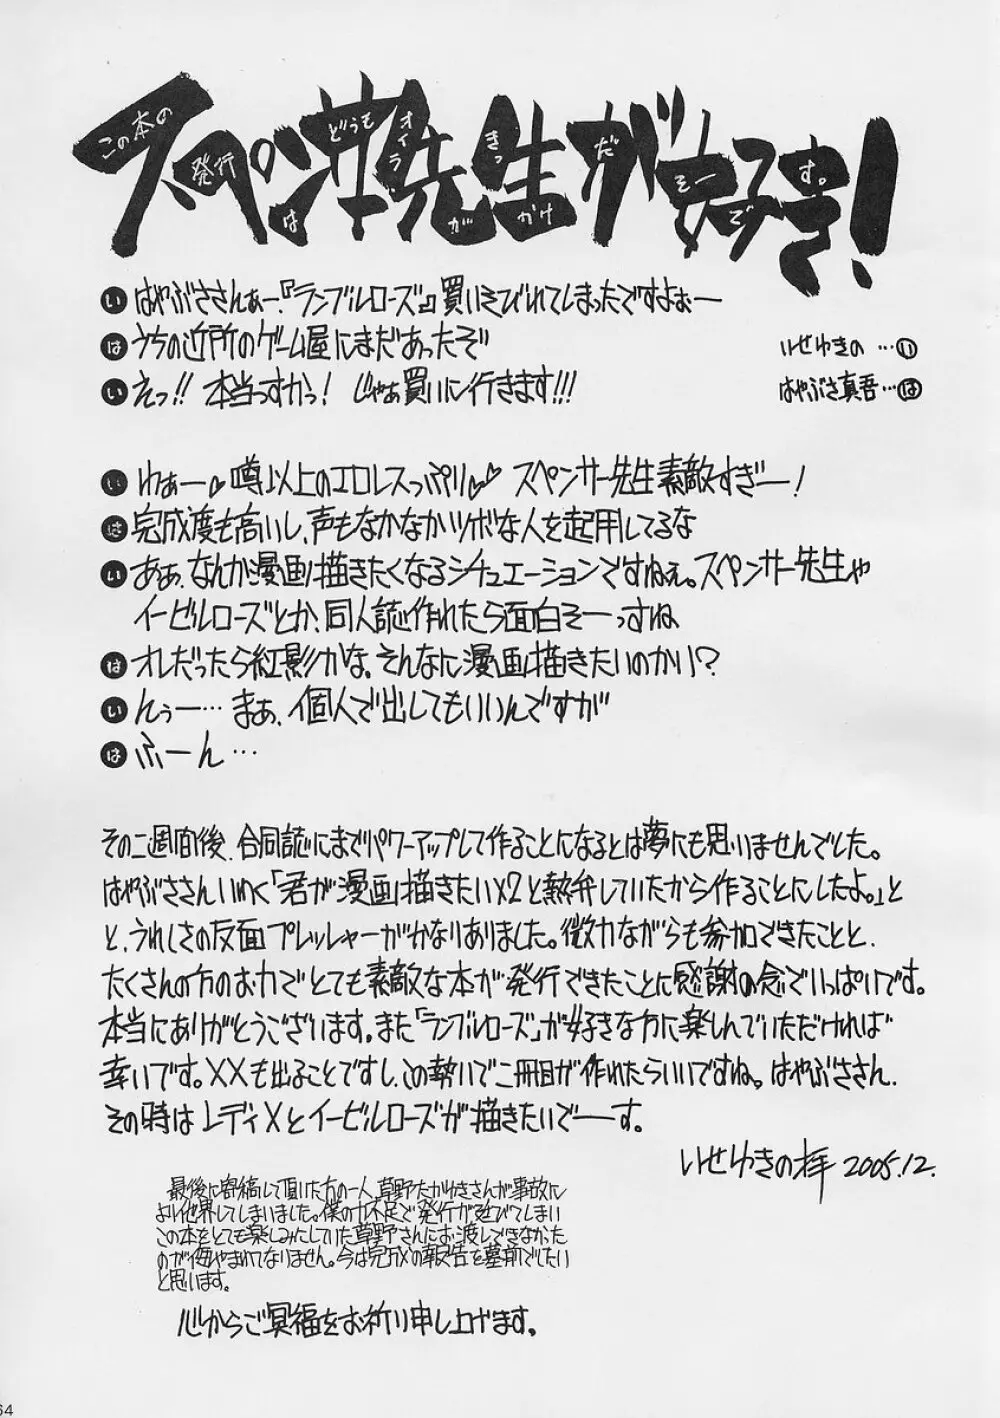 スペンサー先生が好き!
この本の
発行
は
どうも
オイラ
が
きっ
かけ
だ
そーで
す。
い はやぶささんぁー、『ランブルローズ』買いそびれてしまったですよぉー
は うちの近所のゲーム屋にまだあったぞ
い えっ!! 本当っすかっ! じゃぁ買いに行きます!!!
いせゆきの …い
はやぶさ真吾…は
い わぁー♥噂以上のエロレスっぷり♥♥ スペンサー先生素敵すぎー!
は 完成度も高いし、声もなかなかツボな人を起用してるな
い あぁ、なんか漫画描きたくなるシチュエーションですねぇ。スペンサー先生や
イービルローズとか、同人誌作れたら面白そーっすね
は オレだったら紅影かな。そんなに漫画描きたいのかい?
い んぅー…まぁ、個人で出してもいいんですが
は ふーん…
その二週間後、合同誌にまでパワーアップして作ることになるとは夢にも思いませんでした。
はやぶささんいわく「君が漫画描きたい×2と熱弁していたから作ることにしたよ。」と
と、うれしさの反面プレッシャーがかなりありました。微力ながらも参加できたことと、
たくさんの方のお力でとても素敵な本が発行できたことに感謝の念でいっぱいです。
本当にありがとうございます。また「ランブルローズ」が好きな方に楽しんでいただければ
幸いです。XXも出ることですし、この勢いで二冊目が作れたらいいですね。はやぶささん、
その時はレディXとイービルローズが描きたいでーす。
いせゆきの拝 2005.12.
最後に寄稿して頂いた方の一人、草野たかゆきさんが事故に
より他界してしまいました。僕の力不足で発行が延びてしまい
この本をとても楽しみにしていた草野さんにお渡しできなかった
のが悔やまれてなりません。今は完成の報告を墓前でしたい
と思います。
心からご冥福をお祈り申し上げます。
64